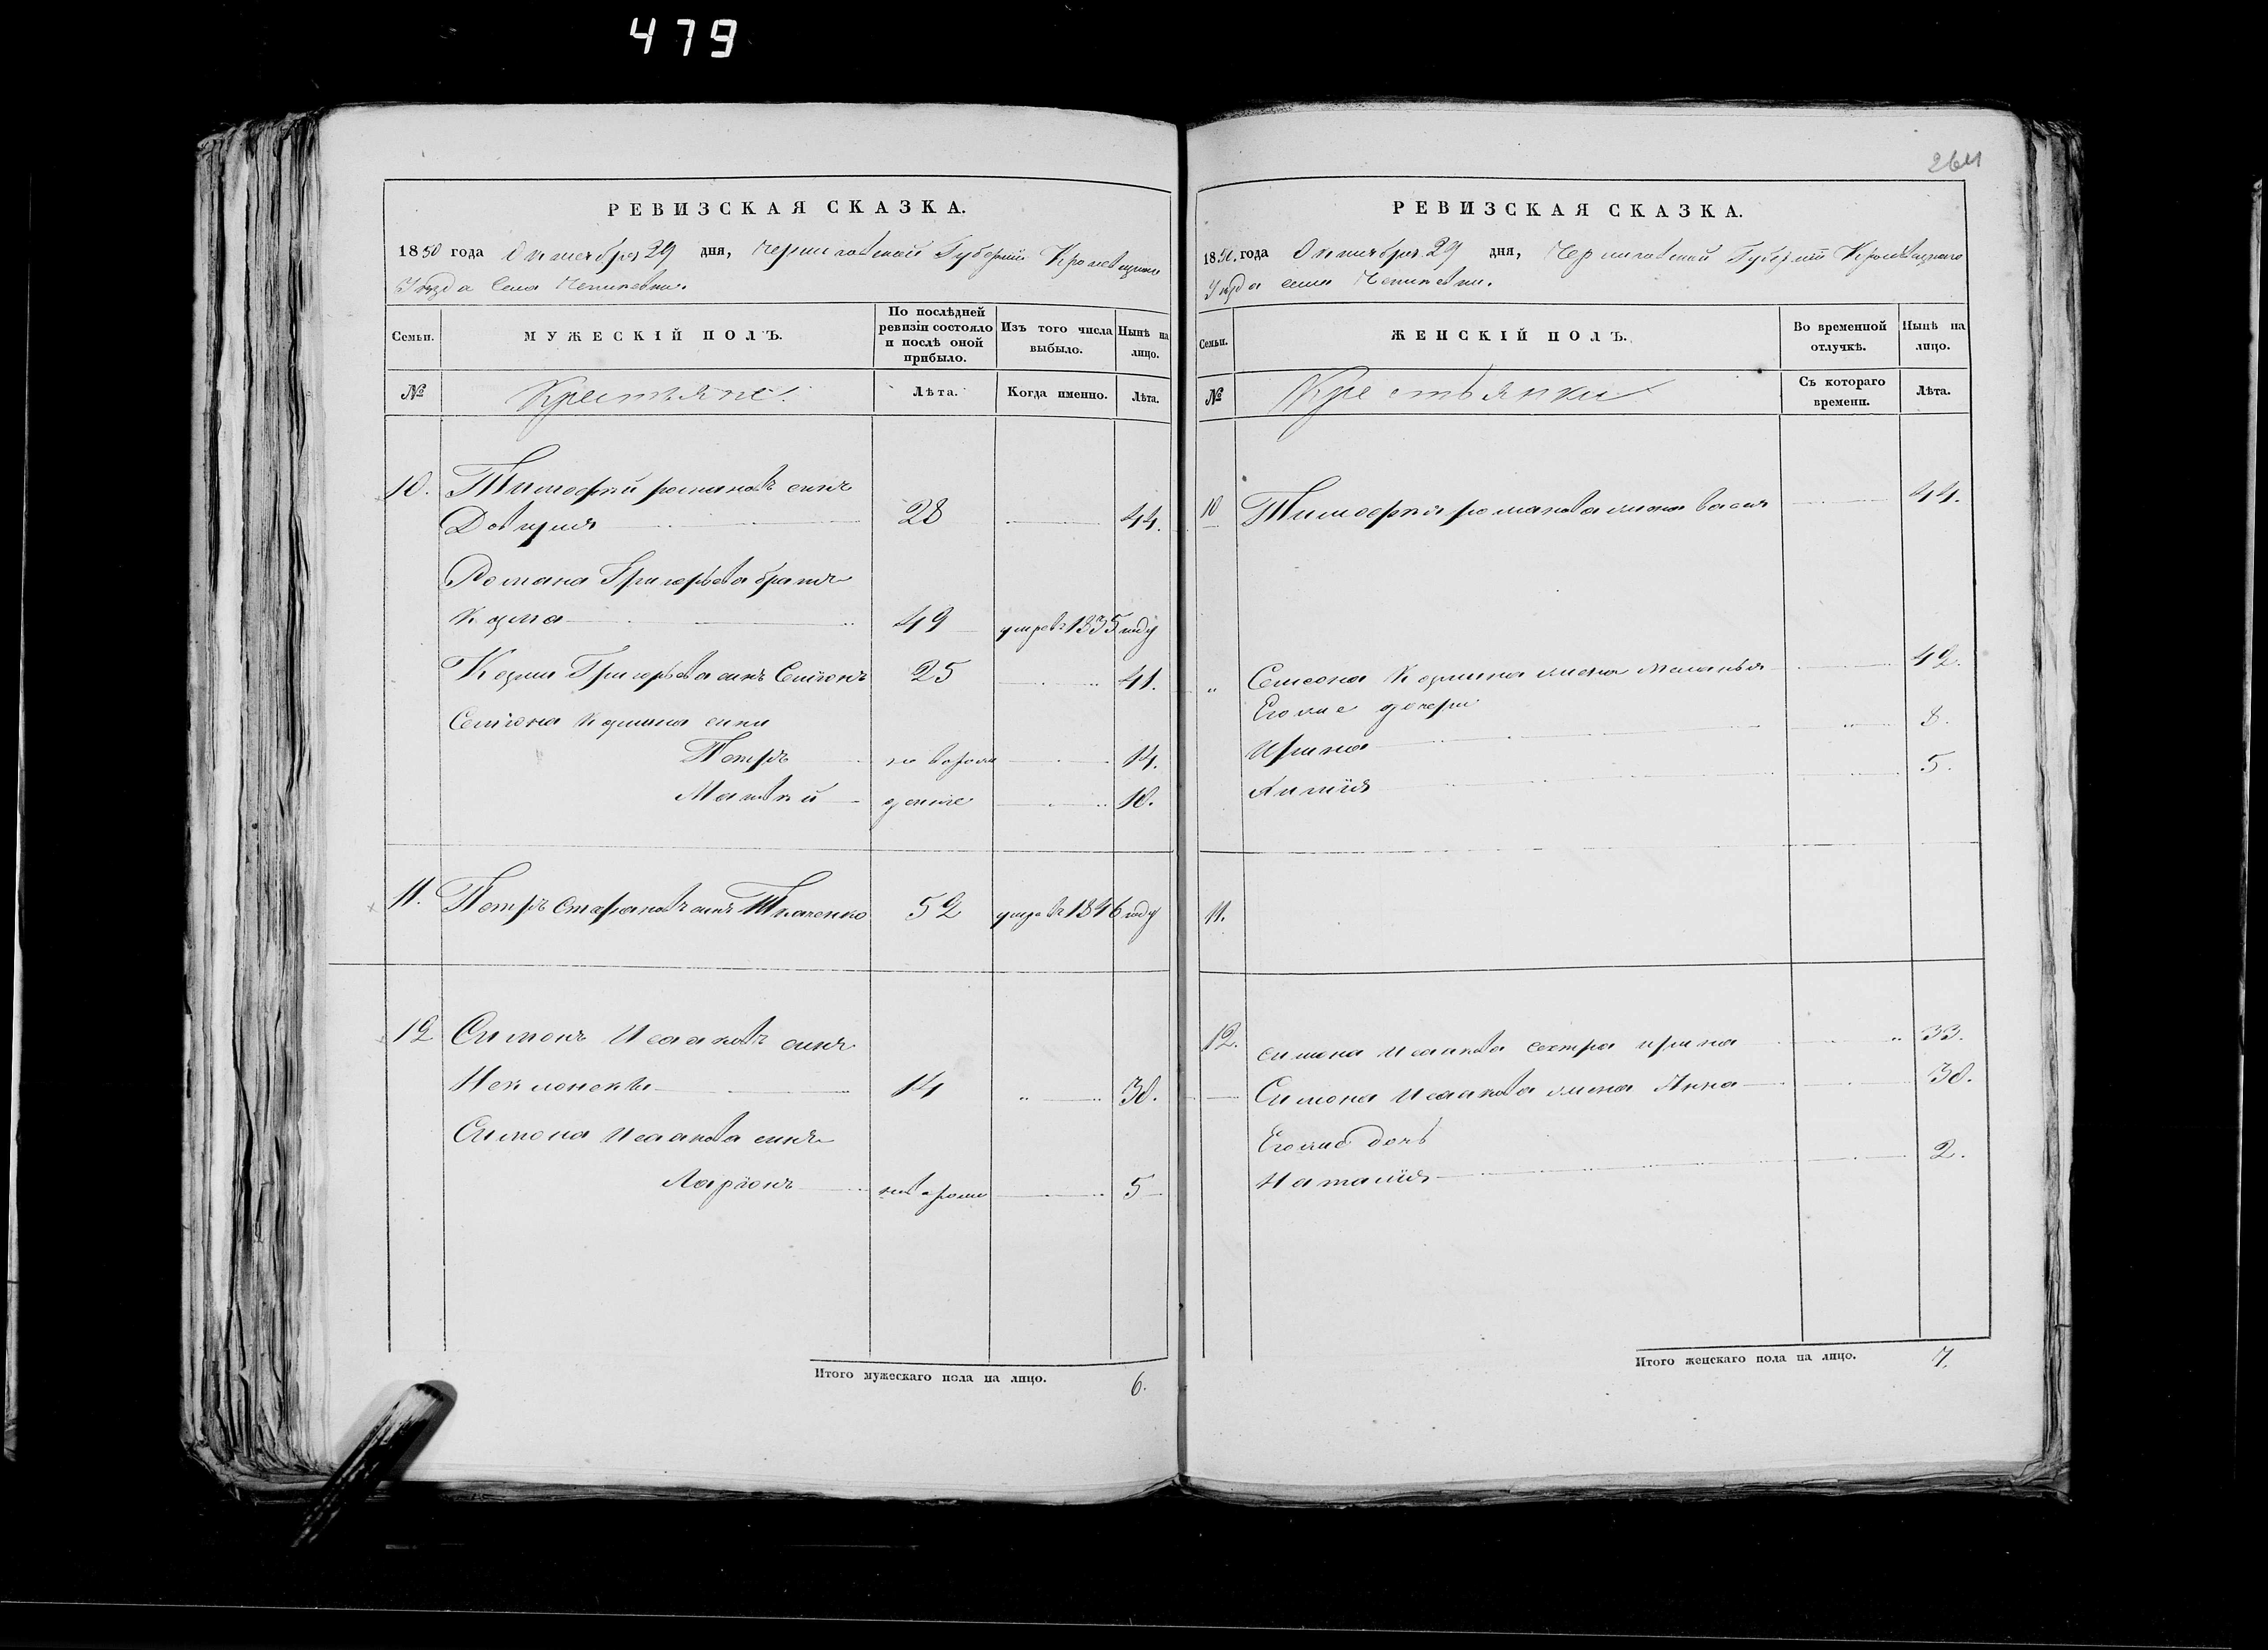 479
264
РЕВИЗСКАЯ СКАЗКА.
1850 года Октября 29 дня, Черниговской Губернiи Кролевецкаго
Уѣзда Села
Семьи.
МУЖЕСКІЙ ПОЛЪ.
По послѣдней ревизіи состояло и послѣ оной прибыло.
Изъ того числа выбыло.
Нынѣ на лицо.
№
Крестьяне.
Лѣта.
Когда именно.
Лѣта.
10. Тимофей романовъ сынъ
28 44.
Романа Григорьева братъ
Козма 49 умре въ 1835 году
Козми Григорьева сынъ Семіонъ 25 41.
Семіона Козмина сини
Петръ новорож 14.
Матвей денние 10.
11. Петръ Стефановъ синъ Ткаченко 52 умре въ 1846 году
12 Симонъ Исааковъ синъ
14 30.
Симона Исаакова синъ
Ларіонъ новорож 5
Итого мужескаго пола на лицо. 6.
РЕВИЗСКАЯ СКАЗКА.
1850 года Октября 29 дня, Черниговской Губернiи Кролевецкаго
Уѣзда села
Семьи.
ЖЕНСКІЙ ПОЛЪ.
Во временной отлучкѣ.
Нынѣ на лицо.
№
Крестьянки
Съ котораго времени.
Лѣта.
10 Тимофея романова жена 44.
„ Семиона Козмина жена Меланья 42.
Его же дочери
Ирина 8.
5.
11.
12. Симона Исаакова сестра ирина 33.
Симона Исаакова жена Анна 30.
Его же дочь
Наталія 2.
Итого женскаго пола на лицо. 7.